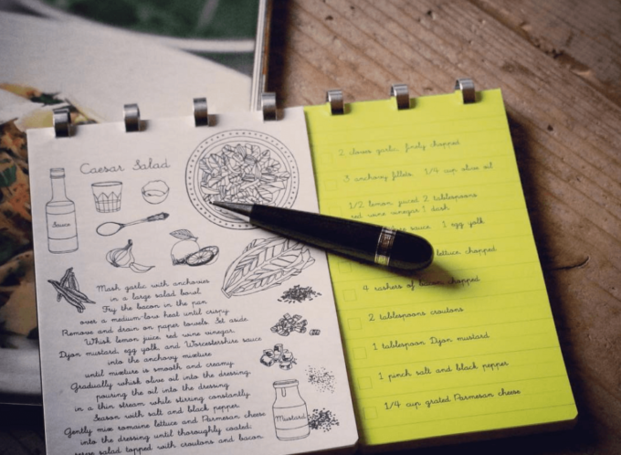 Caesar Salad
Sauce
Mash garlic with anchovies
in a large salad bowl.
Fry the bacon in the pan
over a medium-low heat until crispy
Remove and drain on paper towels. Set aside
Whisk lemon juice, red wine vinegar,
Dijon mustard, egg yolk, and Worcestershire sauce
into the anchovy mixture
until mixture is smooth and creamy.
Gradually whisk olive oil into the dressing,
pouring the oil into the dressing
in a thin stream while stirring constantly.
Season with salt and black pepper.
Gently mix romaine lettuce and Parmesan cheese
into the dressing until thoroughly coated;
serve salad topped with croutons and bacon
Mustard
2 cloves garlic, finely chopped
3 anchovy fillets 1/4 cup olive oil
1/2 lemon, juiced 2 tablespoons
red wine vinegar 1 dash
sauce 1 egg yolk
lettuce chopped
4 rashers of bacon chopped
2 tablespoons croutons
1 tablespoon Dijon mustard
1 pinch salt and black pepper
1/4 cup grated Parmesan cheese